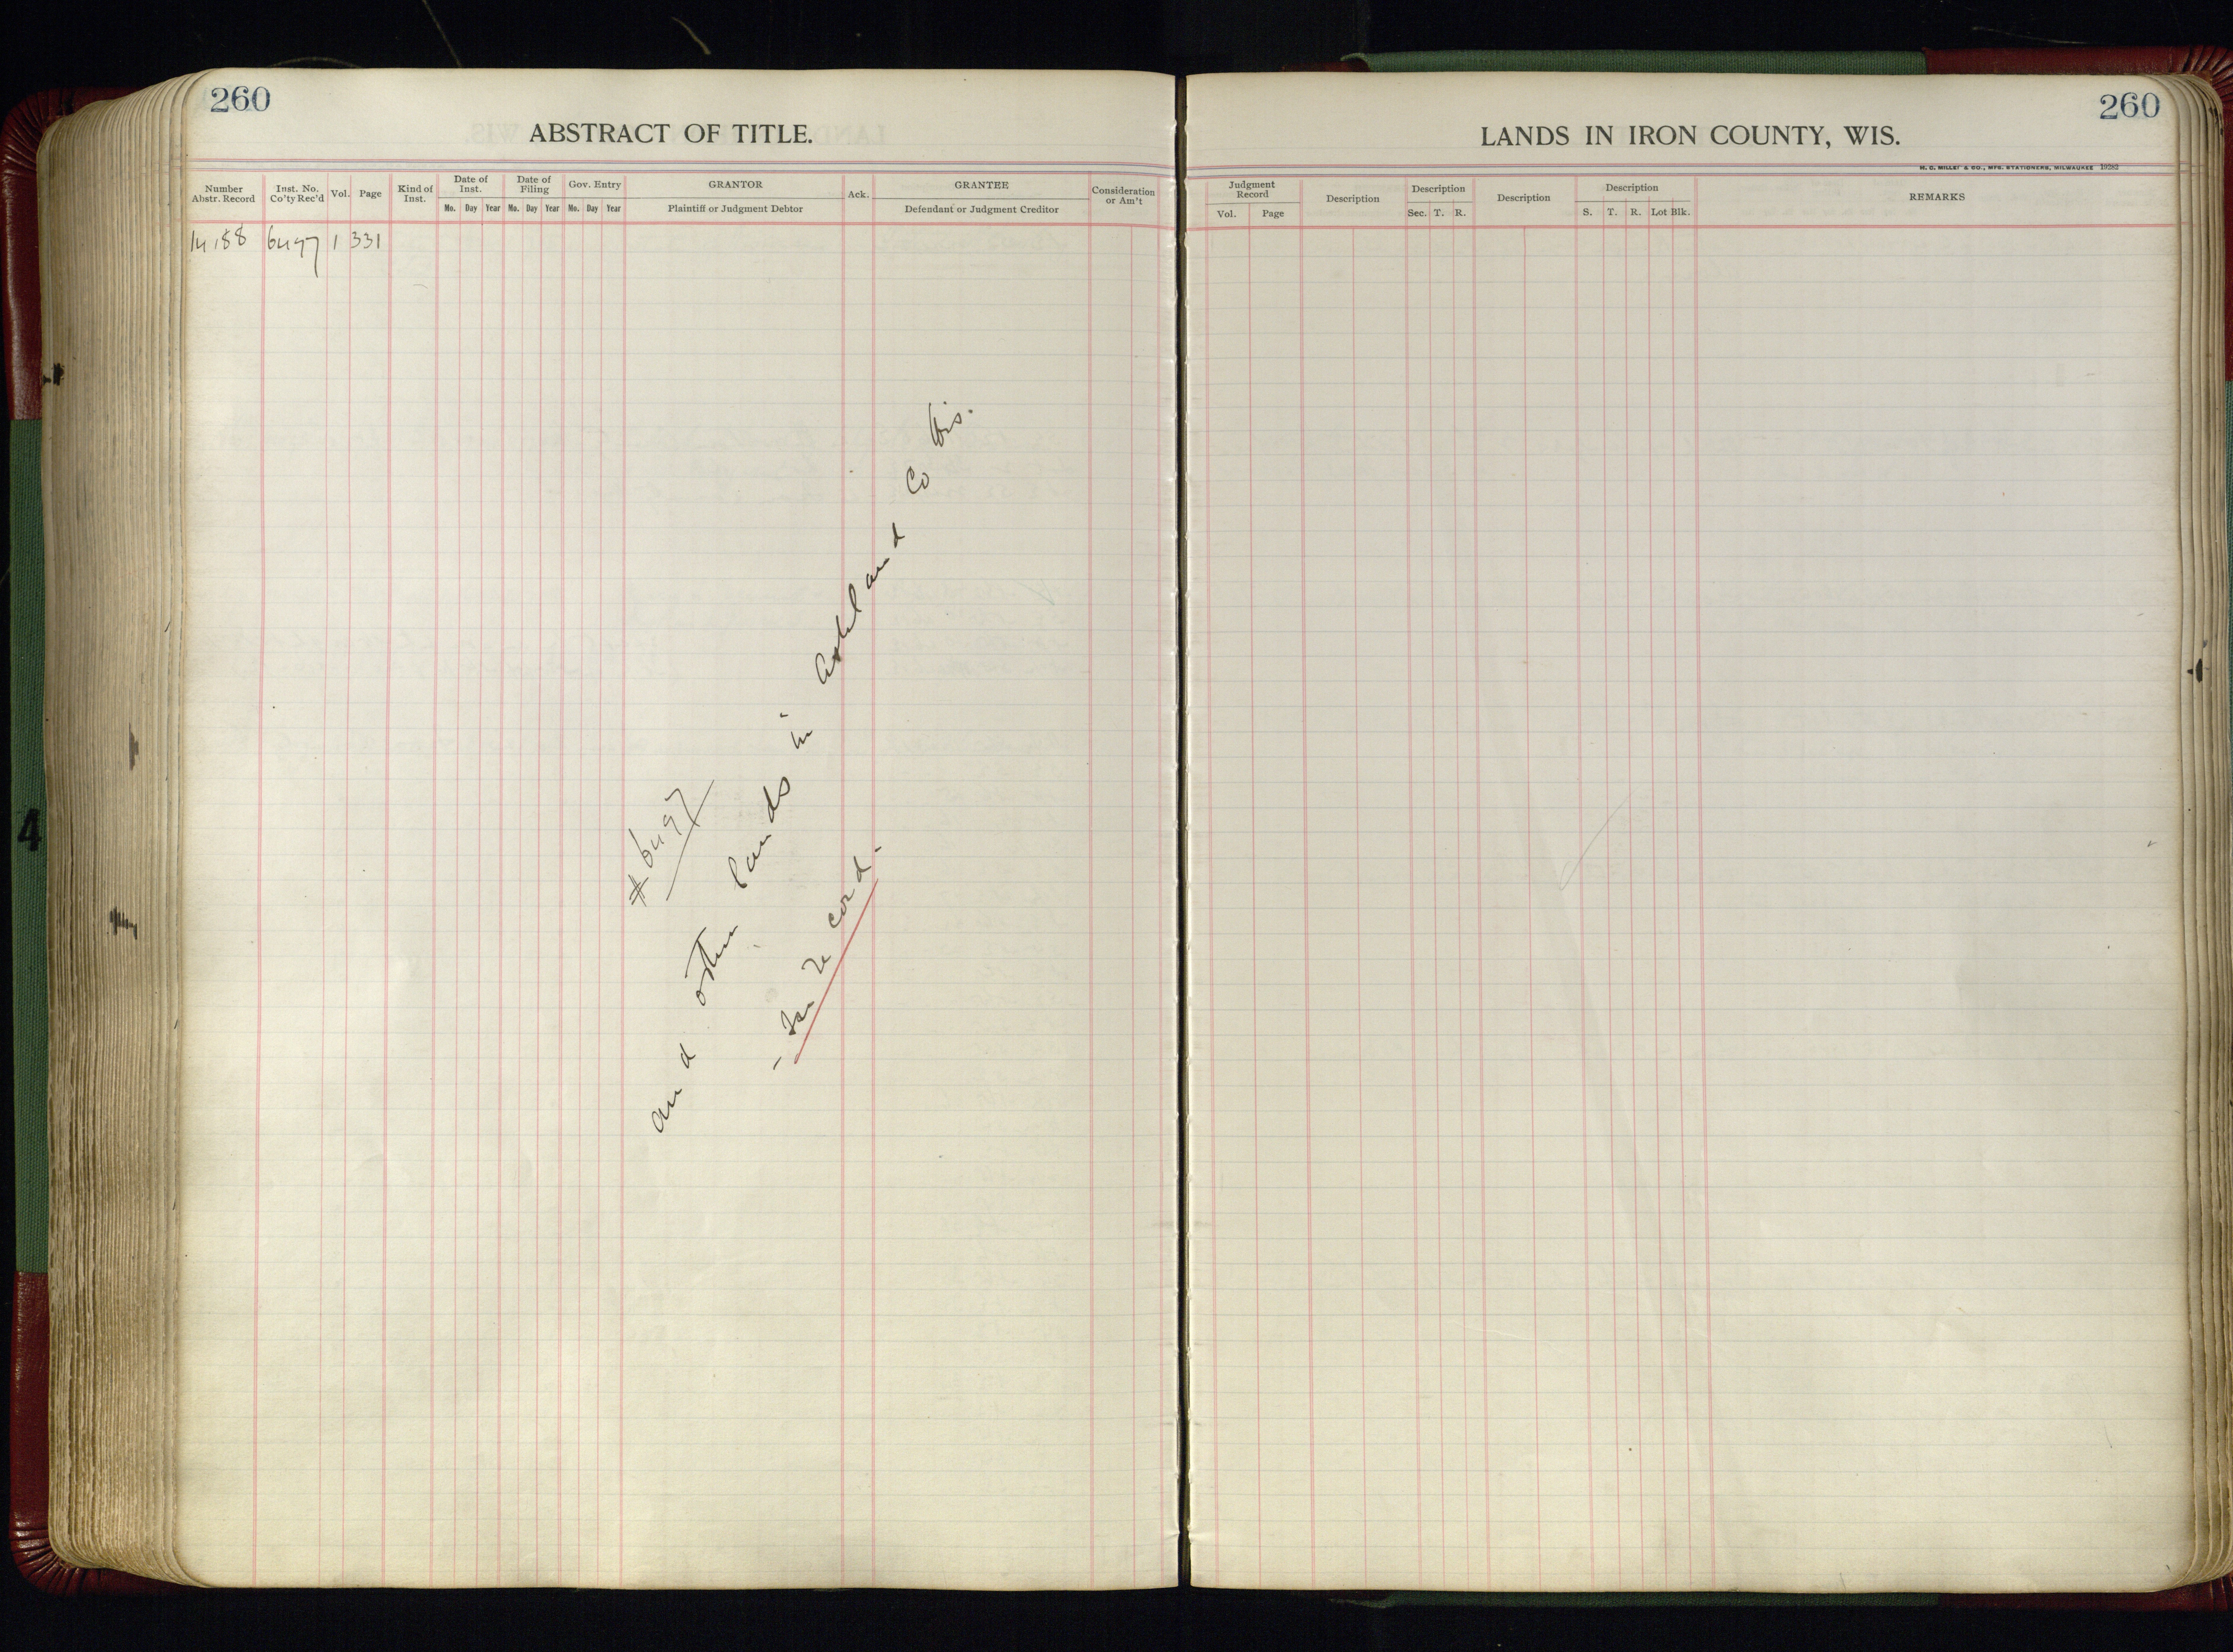 260
ABSTRACT OF TITLE.
Number Abstr. Record
Inst. No. Co'ty Rec'd
Vol.
Page
Kind of Inst.
Date of Inst.
Mo. Day Year
Date of Filing
Mo. Day Year
Gov. Entry
Mo. Day Year
GRANTOR
Plaintiff or Judgment Debtor
Ack.
GRANTEE
Defendant or Judgment Creditor
Consideration or Am't
14188 6497 1 331
# 6497
and other lands in Ashland Co Wis.
- See Record -
260
LANDS IN IRON COUNTY, WIS.
H. C. MILLER CO., MFG. STATIONERS, MILWAUKEE 19282
Judgment Record
Vol. Page
Description
Description
Sec. T. R.
Description
Description
S. T. R. Lot Blk.
REMARKS
4